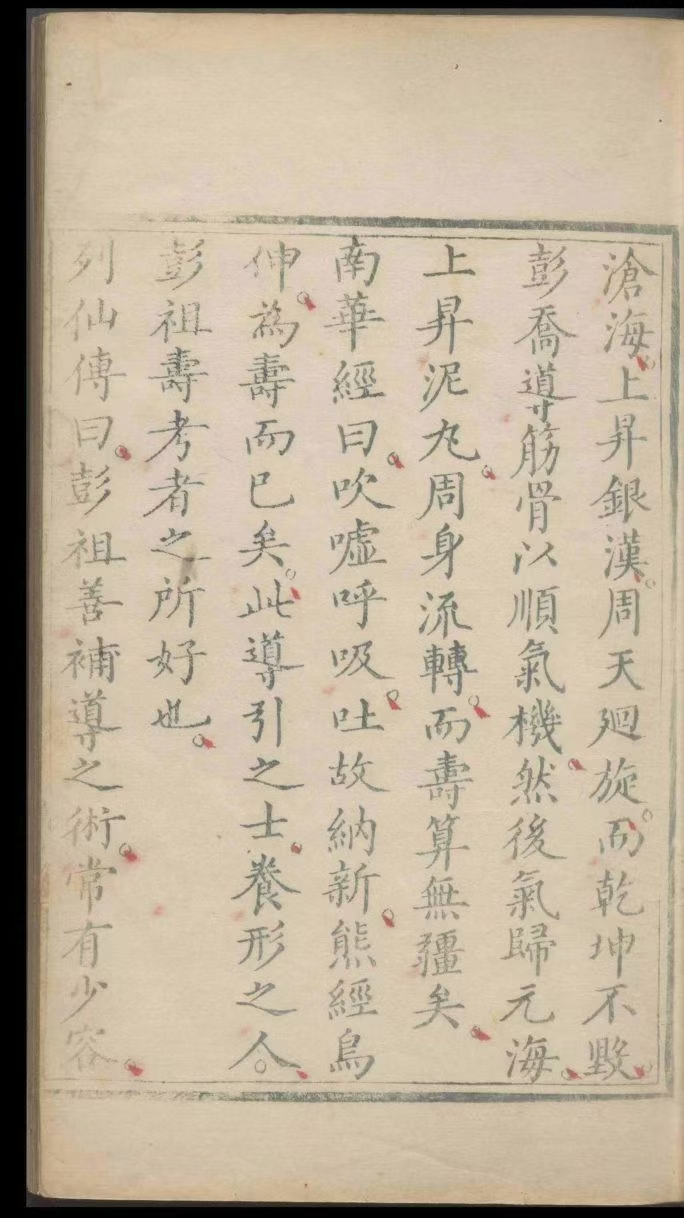 滄海上昇銀漢周天廻旋而乾坤不毀
彭喬導筋骨以順氣機然後氣歸元海
上昇泥丸周身流轉而壽算無疆矣
南華經曰吹噓呼吸吐故納新熊經鳥
伸為壽而已矣此導引之士養形之人
彭祖壽考者之所好也
列仙傳曰彭祖善補導之術常有少容